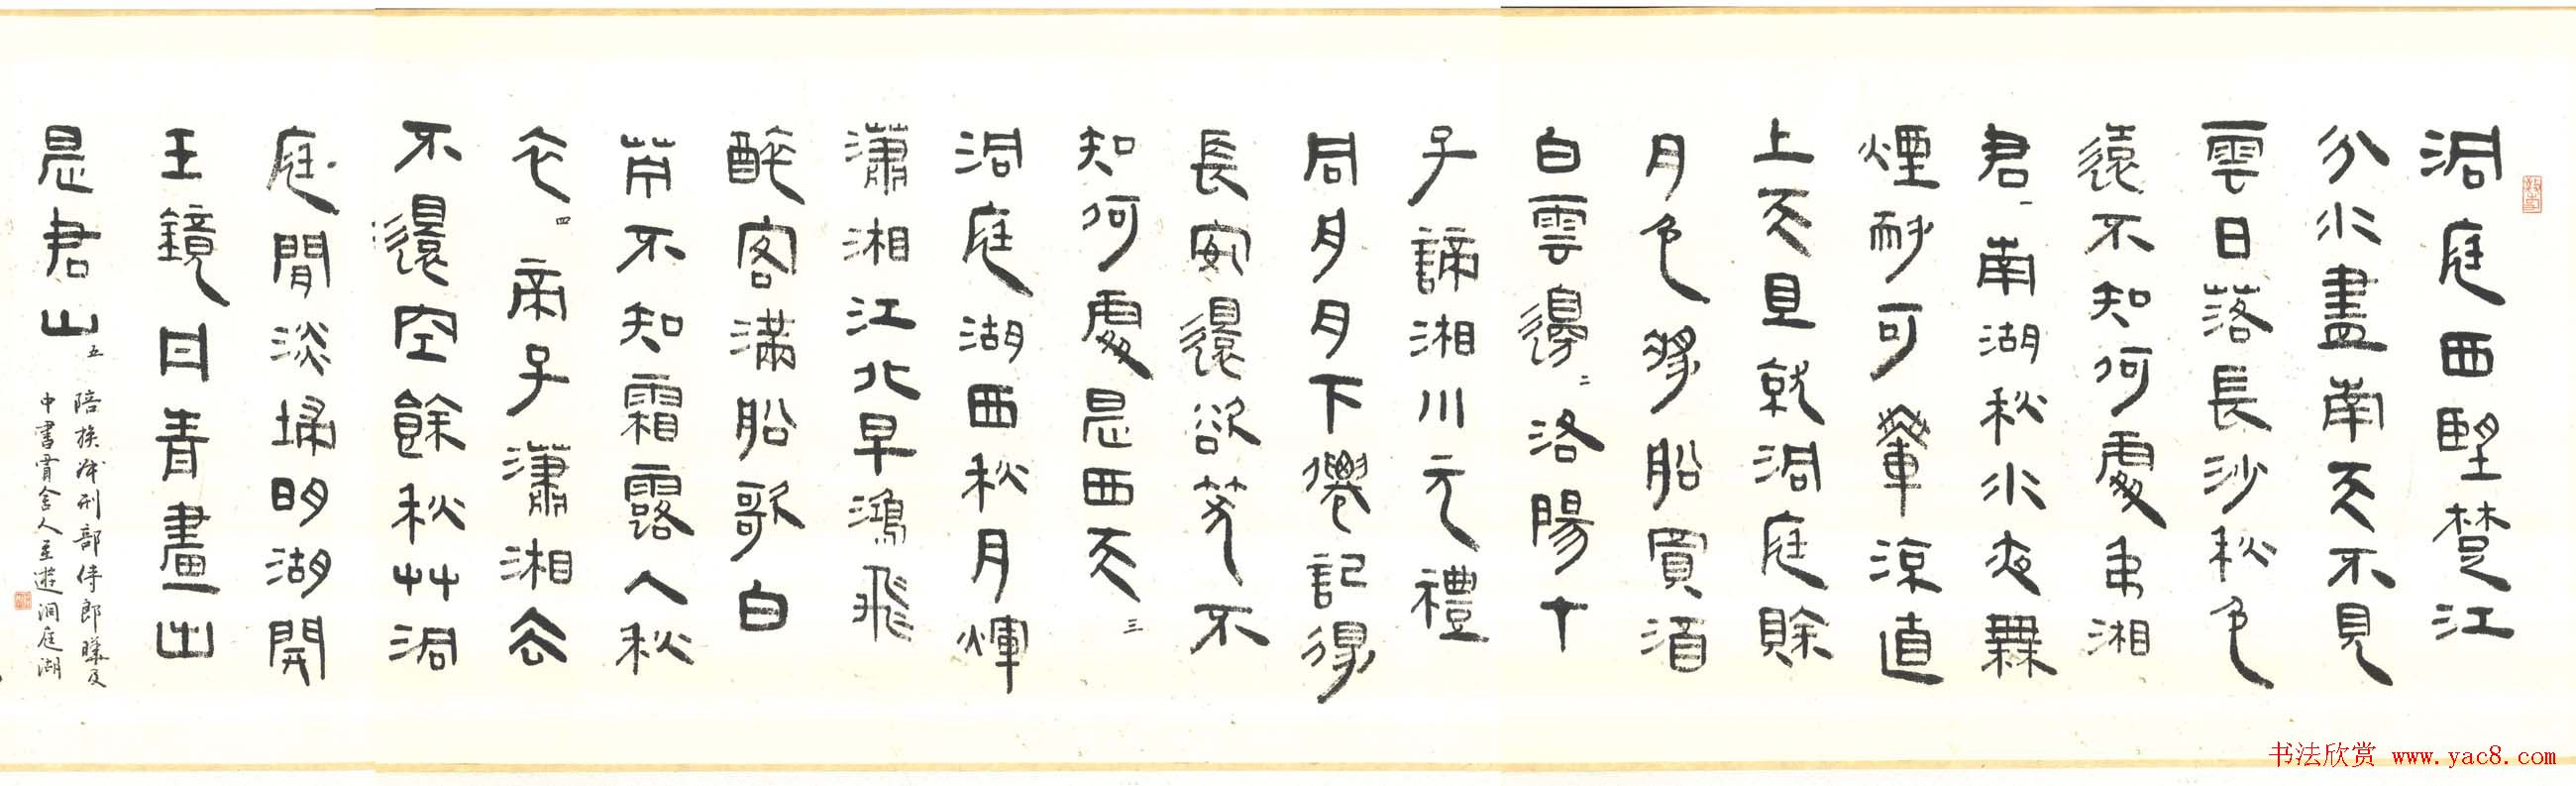 洞庭西望楚江
分水盡南天不見
雲日落長沙秋色
遠不知何處弔湘
君一南湖秋水夜無
煙耐可乘流直
上天且就洞庭賒
月色將船買酒
白雲邊二洛陽才
子謫湘川元禮
同舟月下僊記得
長安還欲笑不
知何處是西天三
洞庭湖西秋月輝
瀟湘江北早鴻飛
醉客滿船歌白
苧不知霜露入秋
衣四帝子瀟湘去
不還空餘秋艸洞
庭間淡掃明湖開
玉鏡丹青畫出
是君山五
陪族叔刑部侍郎曄及
中書賈舍人至遊洞庭湖
书法欣赏 www.yac8.com